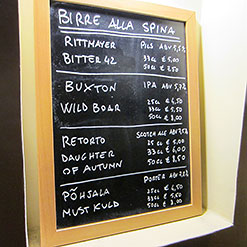 BIRRE ALLA SPINA
RITTMAYER PILS ABV 5,5%
BITTER 42 33CL € 5,00
50CL € 8,50
BUXTON IPA ABV 5,7%
WILD BOAR 25CL € 4,50
33CL € 5,50
50CL € 8,00
RETORTO SCOTCH ALE ABV 7,5%
DAUGHTER 25CL € 5,00
OF AUTUMN 33CL € 6,00
50CL € 8,50
PÕHJALA PORTER ABV
MUST KULD 25CL € 4,50
33CL € 5,50
50CL € 8,00